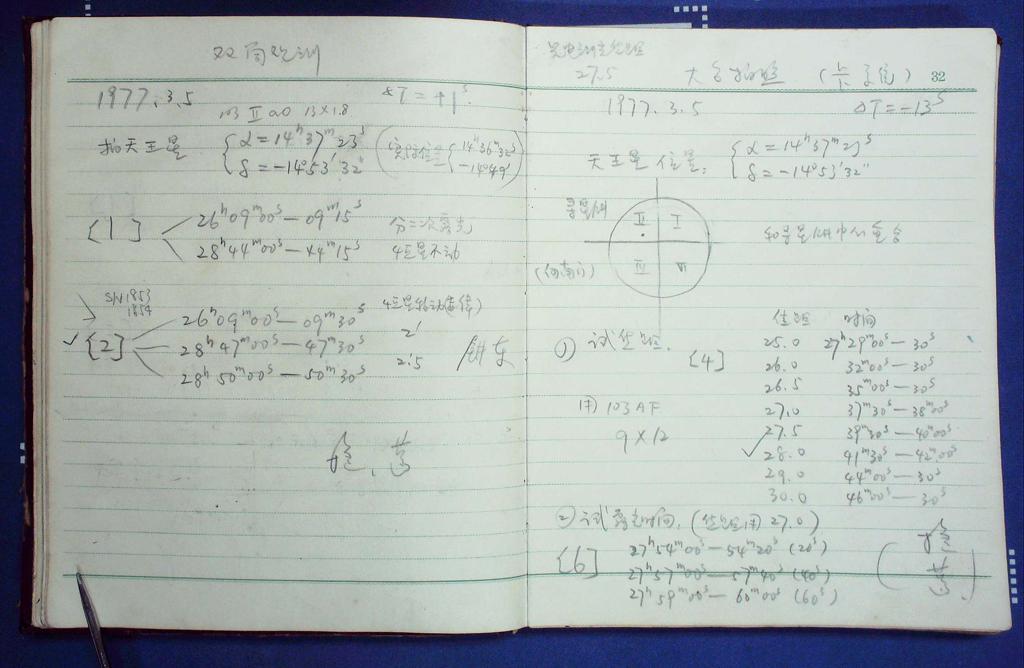 双筒观测
1977.3.5 ΔT=+1ˢ
103 Ⅱ aO 13×1.8
拍天王星 { α=14ʰ37ᵐ23ˢ δ=-14°53′32″ ( 实际位置 { 14ʰ36ᵐ32ˢ -14°49′ )
[1] 26ʰ09ᵐ00ˢ—09ᵐ15ˢ 分二次露光
28ʰ44ᵐ00ˢ—44ᵐ15ˢ 4巨星不动
S/N1853
1854
✓[2] 26ʰ09ᵐ00ˢ—09ᵐ30ˢ 4巨星移动
28ʰ47ᵐ00ˢ—47ᵐ30ˢ 2′
28ʰ50ᵐ00ˢ—50ᵐ30ˢ 2′.5
27.5 大台拍照 (卡系统) 32
1977.3.5 ΔT=-13ˢ
天王星位置: { α=14ʰ37ᵐ23ˢ δ=-14°53′32″
Ⅱ Ⅰ
Ⅲ Ⅳ
焦距 时间
① 试焦距. [4] 25.0 27ʰ29ᵐ00ˢ—30ˢ
26.0 32ᵐ00ˢ—30ˢ
26.5 35ᵐ00ˢ—30ˢ
用 103AF 27.0 37ᵐ30ˢ—38ᵐ00ˢ
9×12 27.5 39ᵐ30ˢ—40ᵐ00ˢ
✓ 28.0 41ᵐ30ˢ—42ᵐ00ˢ
29.0 44ᵐ00ˢ—30ˢ
30.0 46ᵐ00ˢ—30ˢ
② 试露光时间. (焦距用 27.0)
[6] 27ʰ54ᵐ00ˢ—54ᵐ20ˢ (20ˢ)
27ʰ57ᵐ00ˢ—57ᵐ40ˢ (40ˢ)
27ʰ59ᵐ00ˢ—60ᵐ00ˢ (60ˢ)